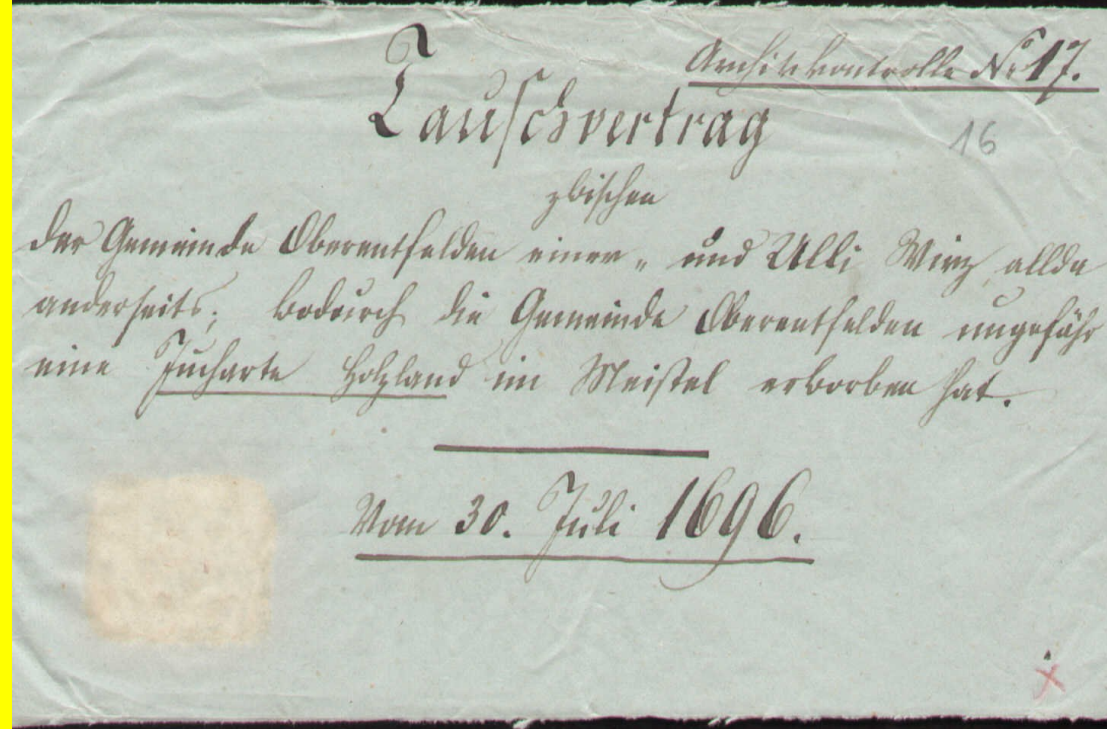 Archivkontrolle No 17.
Tauschvertrag
16
zwischen
der Gemeinde Oberentfelden einer- und Ulli Wirz allda
anderseits; wodurch die Gemeinde Oberentfelden ungefähr
eine Jucharte Holzland im Meistel erworben hat.
Vom 30. Juli 1696.
x